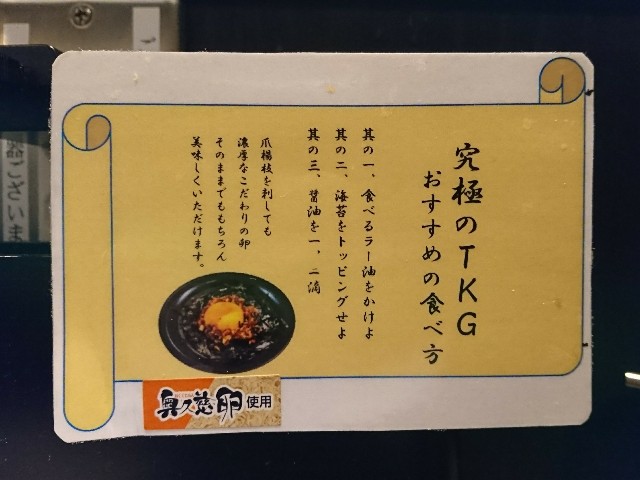 究極のTKG
おすすめの食べ方
其の一、食べるラー油をかけよ
其の二、海苔をトッピングせよ
其の三、醤油を一、二滴
爪楊枝を刺しても
濃厚なこだわりの卵
そのままでももちろん
美味しくいただけます。
奥久慈卵使用
ございま